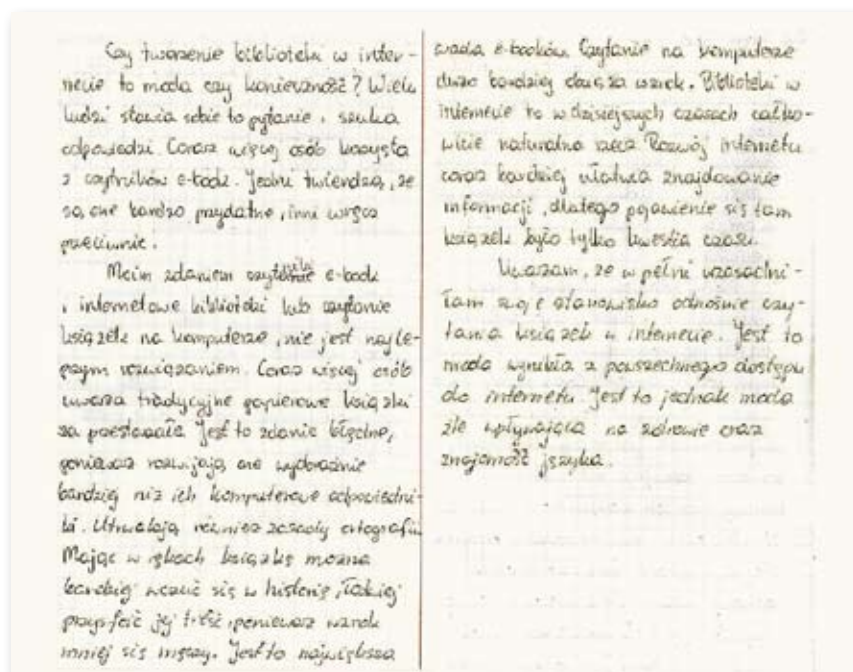 Czy tworzenie bibliotek w inter-
necie to moda czy konieczność? Wielu
ludzi stawia sobie to pytanie i szuka
odpowiedzi. Coraz więcej osób korzysta
z czytników e-book. Jedni twierdzą, że
są one bardzo przydatne, inni wręcz
przeciwnie.
Moim zdaniem e-book
i internetowe biblioteki lub czytanie
książek na komputerze, nie jest najle-
pszym rozwiązaniem. Coraz więcej osób
uważa tradycyjne papierowe książki
za przestarzałe. Jest to zdanie błędne,
ponieważ rozwijają one wyobraźnie
bardziej niż ich komputerowe odpowiedni-
ki. Utrwalają również zasady ortografii.
Mając w rękach książkę można
bardziej wczuć się w historię, łatwiej
jej treść, ponieważ wzrok
mniej się męczy. Jest to największa
wada e-booków. Czytanie na komputerze
dużo bardziej wzrok. Biblioteki w
internecie to w dzisiejszych czasach całko-
wicie naturalna rzecz. Rozwój internetu
coraz bardziej ułatwia znajdowanie
informacji, dlatego pojawienie się tam
książek było tylko kwestią czasu.
Uważam, że w pełni uzasadni-
łam swoje stanowisko odnośnie czy-
tania książek w internecie. Jest to
moda wynikła z powszechnego dostępu
do internetu. Jest to jednak moda
źle wpływająca na zdrowie oraz
znajomość języka.